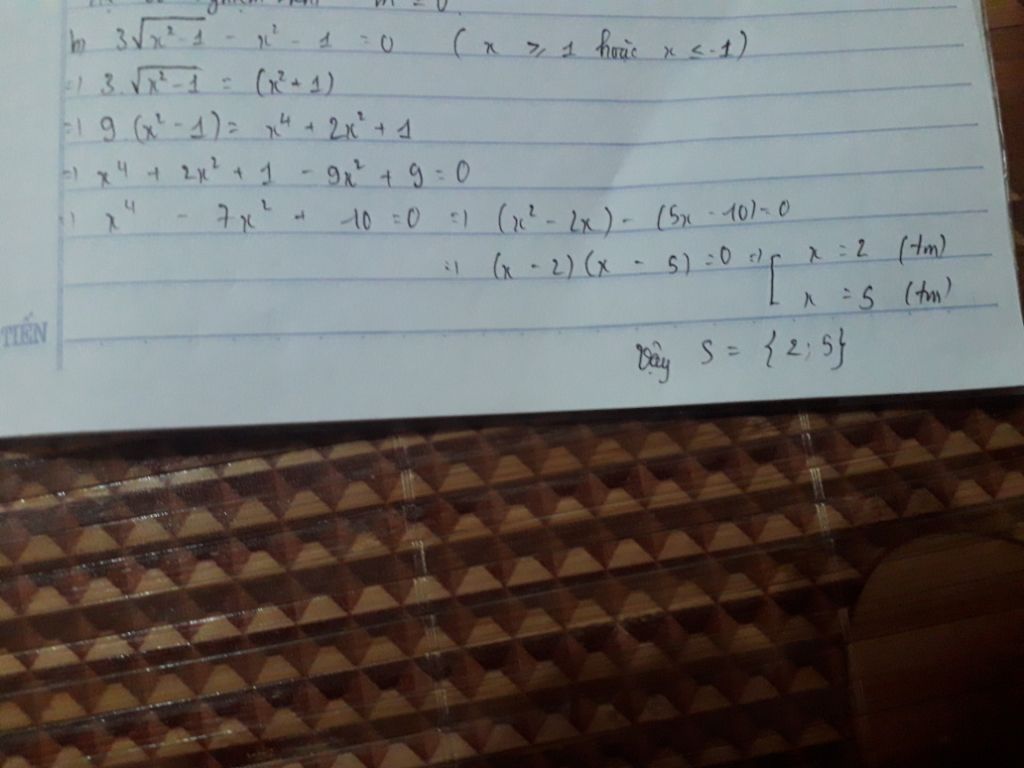 m = 0
b) 3√(x² - 1) - x² - 1 = 0 ( x ≥ 1 hoặc x ≤ -1)
=> 3.√(x² - 1) = (x² + 1)
=> 9 (x² - 1) = x⁴ + 2x² + 1
=> x⁴ + 2x² + 1 - 9x² + 9 = 0
=> x⁴ - 7x² + 10 = 0 => (x² - 2x) - (5x - 10) = 0
=> (x - 2)(x - 5) = 0 => [ x = 2 (tm)
x = 5 (tm)
TIẾN
Vậy S = {2; 5}